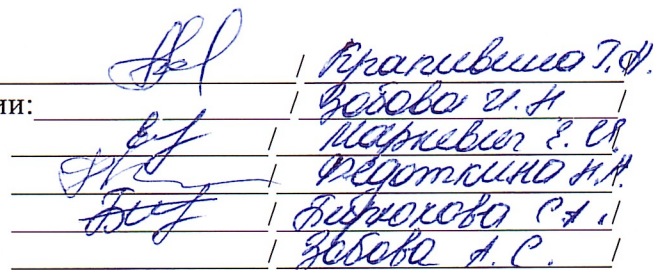 / Крапивина Т.Н.
ии: / Зобова И.Н /
/ Маркевич Е.И.
/ Федоткина Н.Н.
/ Бирюкова С.А. /
/ Забова А.С. /